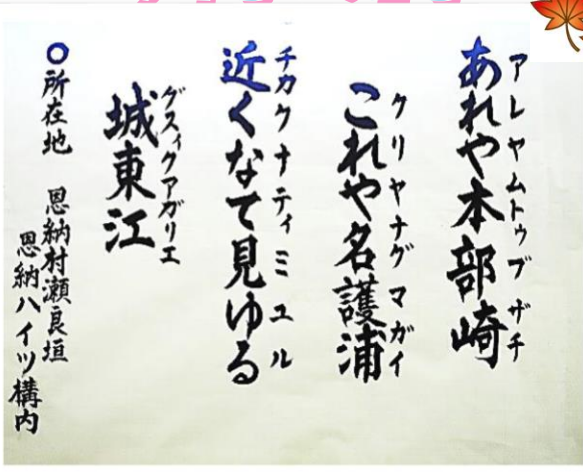 アレヤムトゥブザチ
あれや本部崎
クリヤナグマガイ
これや名護浦
チカクナティミユル
近くなて見ゆる
グスィクアガリエ
城東江
○所在地 恩納村瀬良垣
恩納ハイツ構内